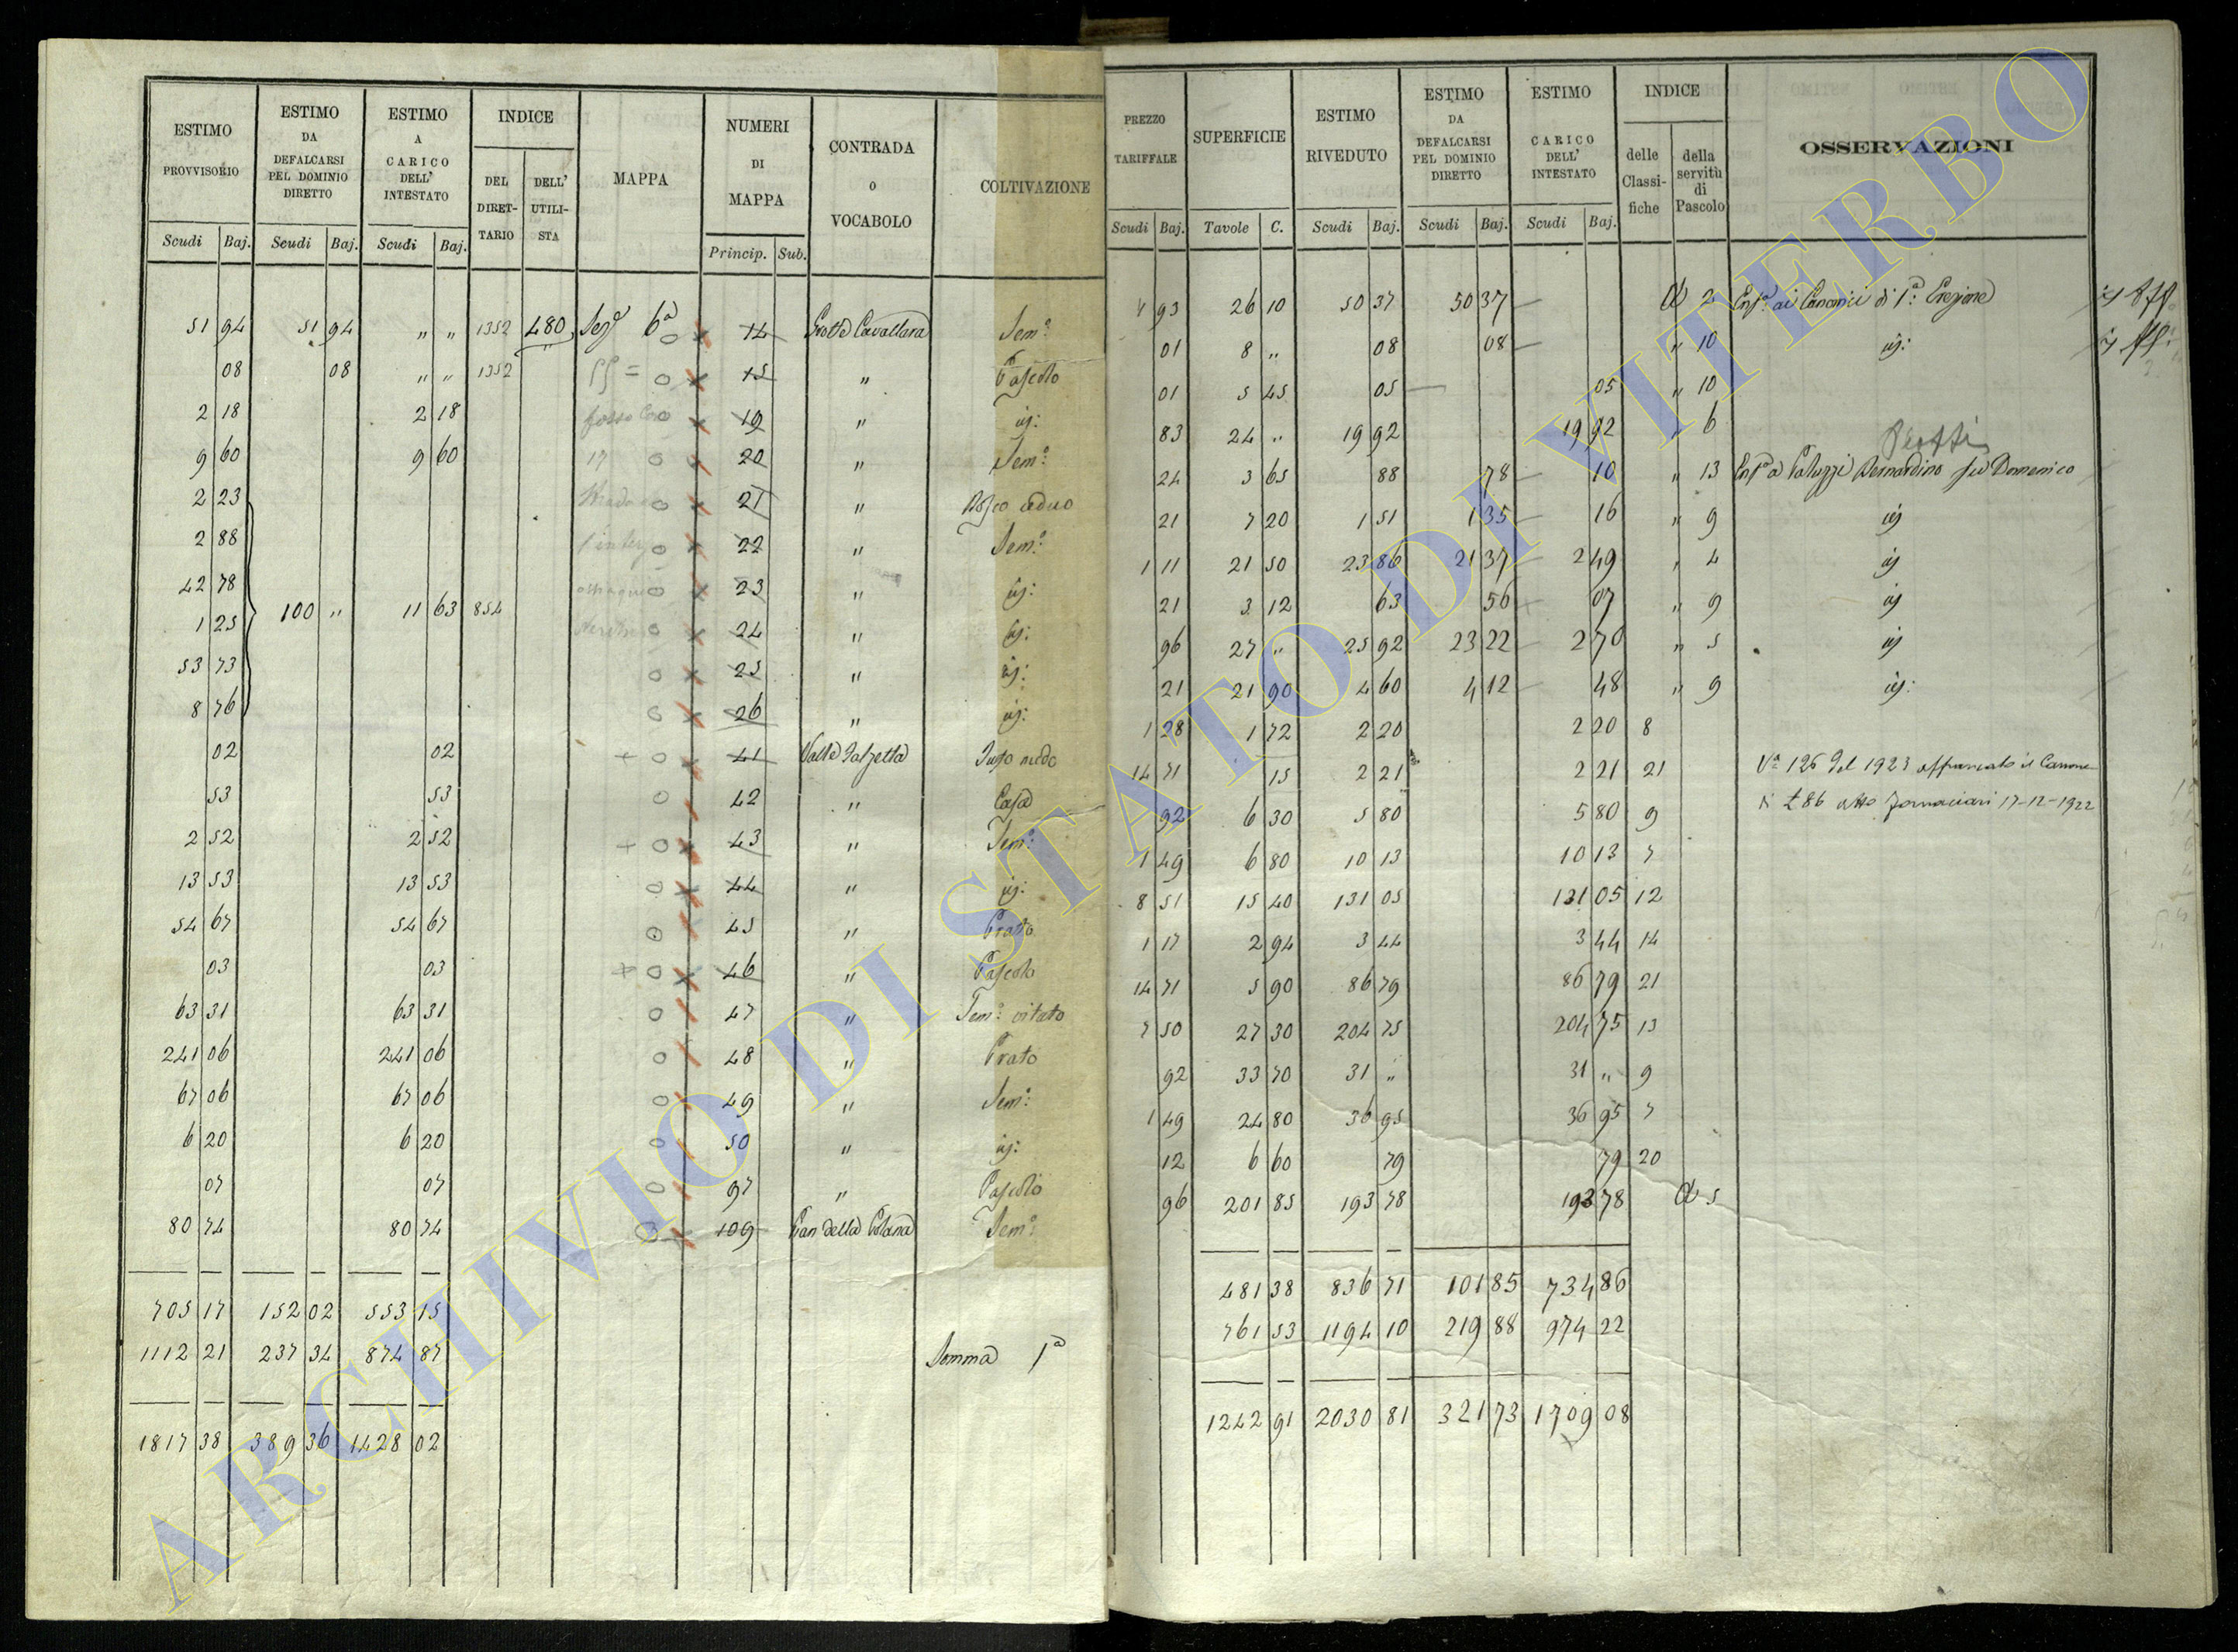 ESTIMO PROVVISORIO
Scudi Baj.
ESTIMO DA DEFALCARSI PEL DOMINIO DIRETTO
Scudi Baj.
ESTIMO A CARICO DELL' INTESTATO
Scudi Baj.
INDICE
DEL DIRET-TARIO
DELL' UTILI-STA
MAPPA
NUMERI DI MAPPA
Princip. Sub.
CONTRADA O VOCABOLO
COLTIVAZIONE
51 94 51 94 " " 1352 480 Sezе 6a 14 Grotte Cavallara Semo
08 08 " " 1352 15 " Pascolo
2 18 2 18 fosso 19 "
9 60 9 60 20 " Semo
2 23 21 " Bosco ceduo
2 88 22 " Semo
42 78 23 "
1 25 100 " 11 63 854 24 "
53 73 25 "
8 76 26 "
02 02 41 " Sasso nudo
53 53 42 " Casa
2 52 2 52 43 " Semo
13 53 13 53 44 "
54 67 54 67 45 " Prato
03 03 46 " Pascolo
63 31 63 31 47 " Semo vitato
241 06 241 06 48 " Prato
67 06 67 06 49 " Semo
6 20 6 20 50 "
07 07 97 " Pascolo
80 74 80 74 109 Pian della Semo
705 17 152 02 553 15
1112 21 237 34 874 87 Somma 1a
1817 38 389 36 1428 02
PREZZO TARIFFALE
Scudi Baj.
SUPERFICIE
Tavole C.
ESTIMO RIVEDUTO
Scudi Baj.
ESTIMO DA DEFALCARSI PEL DOMINIO DIRETTO
Scudi Baj.
ESTIMO CARICO DELL' INTESTATO
Scudi Baj.
INDICE
delle Classi-fiche
della servitù di Pascolo
OSSERVAZIONI
1 93 26 10 50 37 50 37 2 ai Canonici di 1a Erezione
01 8 " 08 08 " 10
01 5 45 05 05 " 10
83 24 " 19 92 19 92 " 6
24 3 65 88 78 10 " 13 Bernardino fu Domenico
21 7 20 1 51 1 35 16 " 9
1 11 21 50 23 86 21 37 2 49 " 4
21 3 12 63 56 07 " 9
96 27 " 25 92 23 22 2 70 " 5
21 21 90 4 60 4 12 48 " 9
1 28 1 72 2 20 2 20 8
14 71 15 2 21 2 21 21 Va 126 del 1923 affrancato il Canone
92 6 30 5 80 5 80 9 di £ 86 atto 17-12-1922
1 49 6 80 10 13 10 13 7
8 51 15 40 131 05 131 05 12
1 17 2 94 3 44 3 44 14
14 71 5 90 86 79 86 79 21
7 50 27 30 204 75 204 75 13
92 33 70 31 " 31 " 9
1 49 24 80 36 95 36 95 7
12 6 60 79 79 20
96 201 85 193 78 193 78 5
481 38 836 71 101 85 734 86
761 53 1194 10 219 88 974 22
1242 91 2030 81 321 73 1709 08
ARCHIVIO DI STATO DI VITERBO